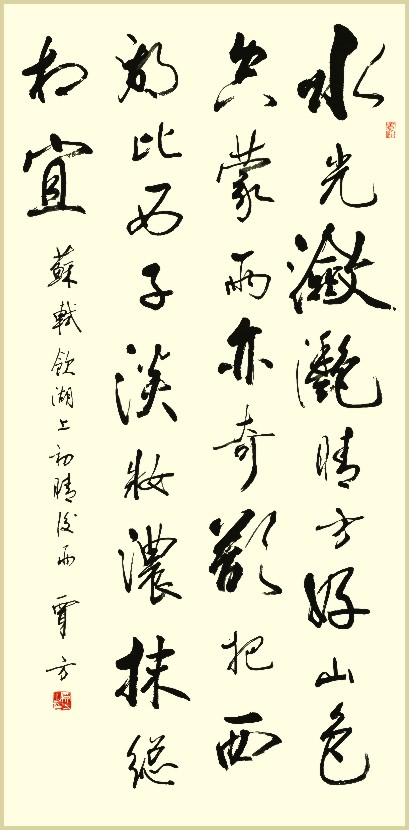 水光瀲灧晴方好山色
空蒙雨亦奇欲把西
湖比西子淡妝濃抹總
相宜
蘇軾飲湖上初晴後雨 方